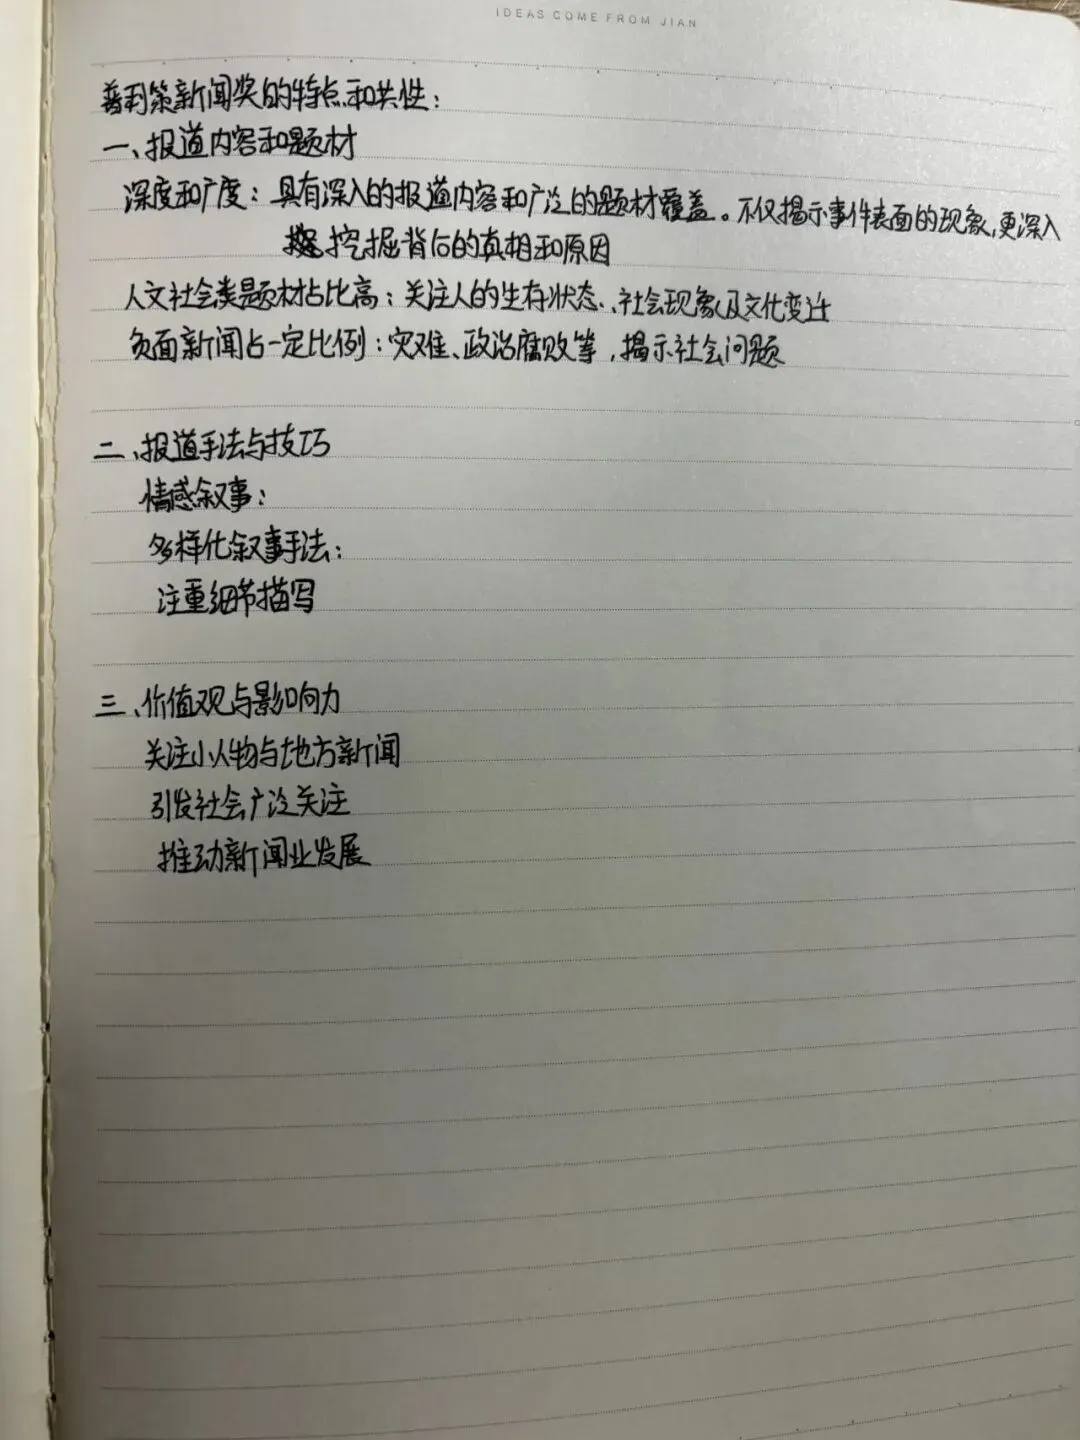 IDEAS COME FROM JIAN
普利策新闻奖的特点和共性：
一、报道内容和题材
深度和广度：具有深入的报道内容和广泛的题材覆盖。不仅揭示事件表面的现象，更深入
挖掘背后的真相和原因
人文社会类题材占比高：关注人的生存状态、社会现象及文化变迁
负面新闻占一定比例：灾难、政治腐败等，揭示社会问题
二、报道手法与技巧
情感叙事：
多样化叙事手法：
注重细节描写
三、价值观与影响力
关注小人物与地方新闻
引发社会广泛关注
推动新闻业发展